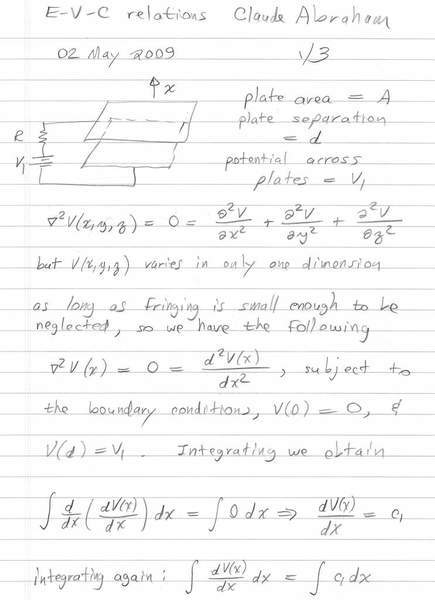 E-V-C relations Claude Abraham
02 May 2009 1/3
x
plate area = A
plate separation
= d
R
V₁
potential across
plates = V₁
∇²V(x,y,z) = 0 = ∂²V/∂x² + ∂²V/∂y² + ∂²V/∂z²
but V(x,y,z) varies in only one dimension
as long as fringing is small enough to be
neglected, so we have the following
∇²V(x) = 0 = d²V(x)/dx² , subject to
the boundary conditions, V(0) = 0, &
V(d) = V₁ . Integrating we obtain
∫ d/dx (dV(x)/dx) dx = ∫ 0 dx ⇒ dV(x)/dx = c₁
integrating again: ∫ dV(x)/dx dx = ∫ c₁ dx